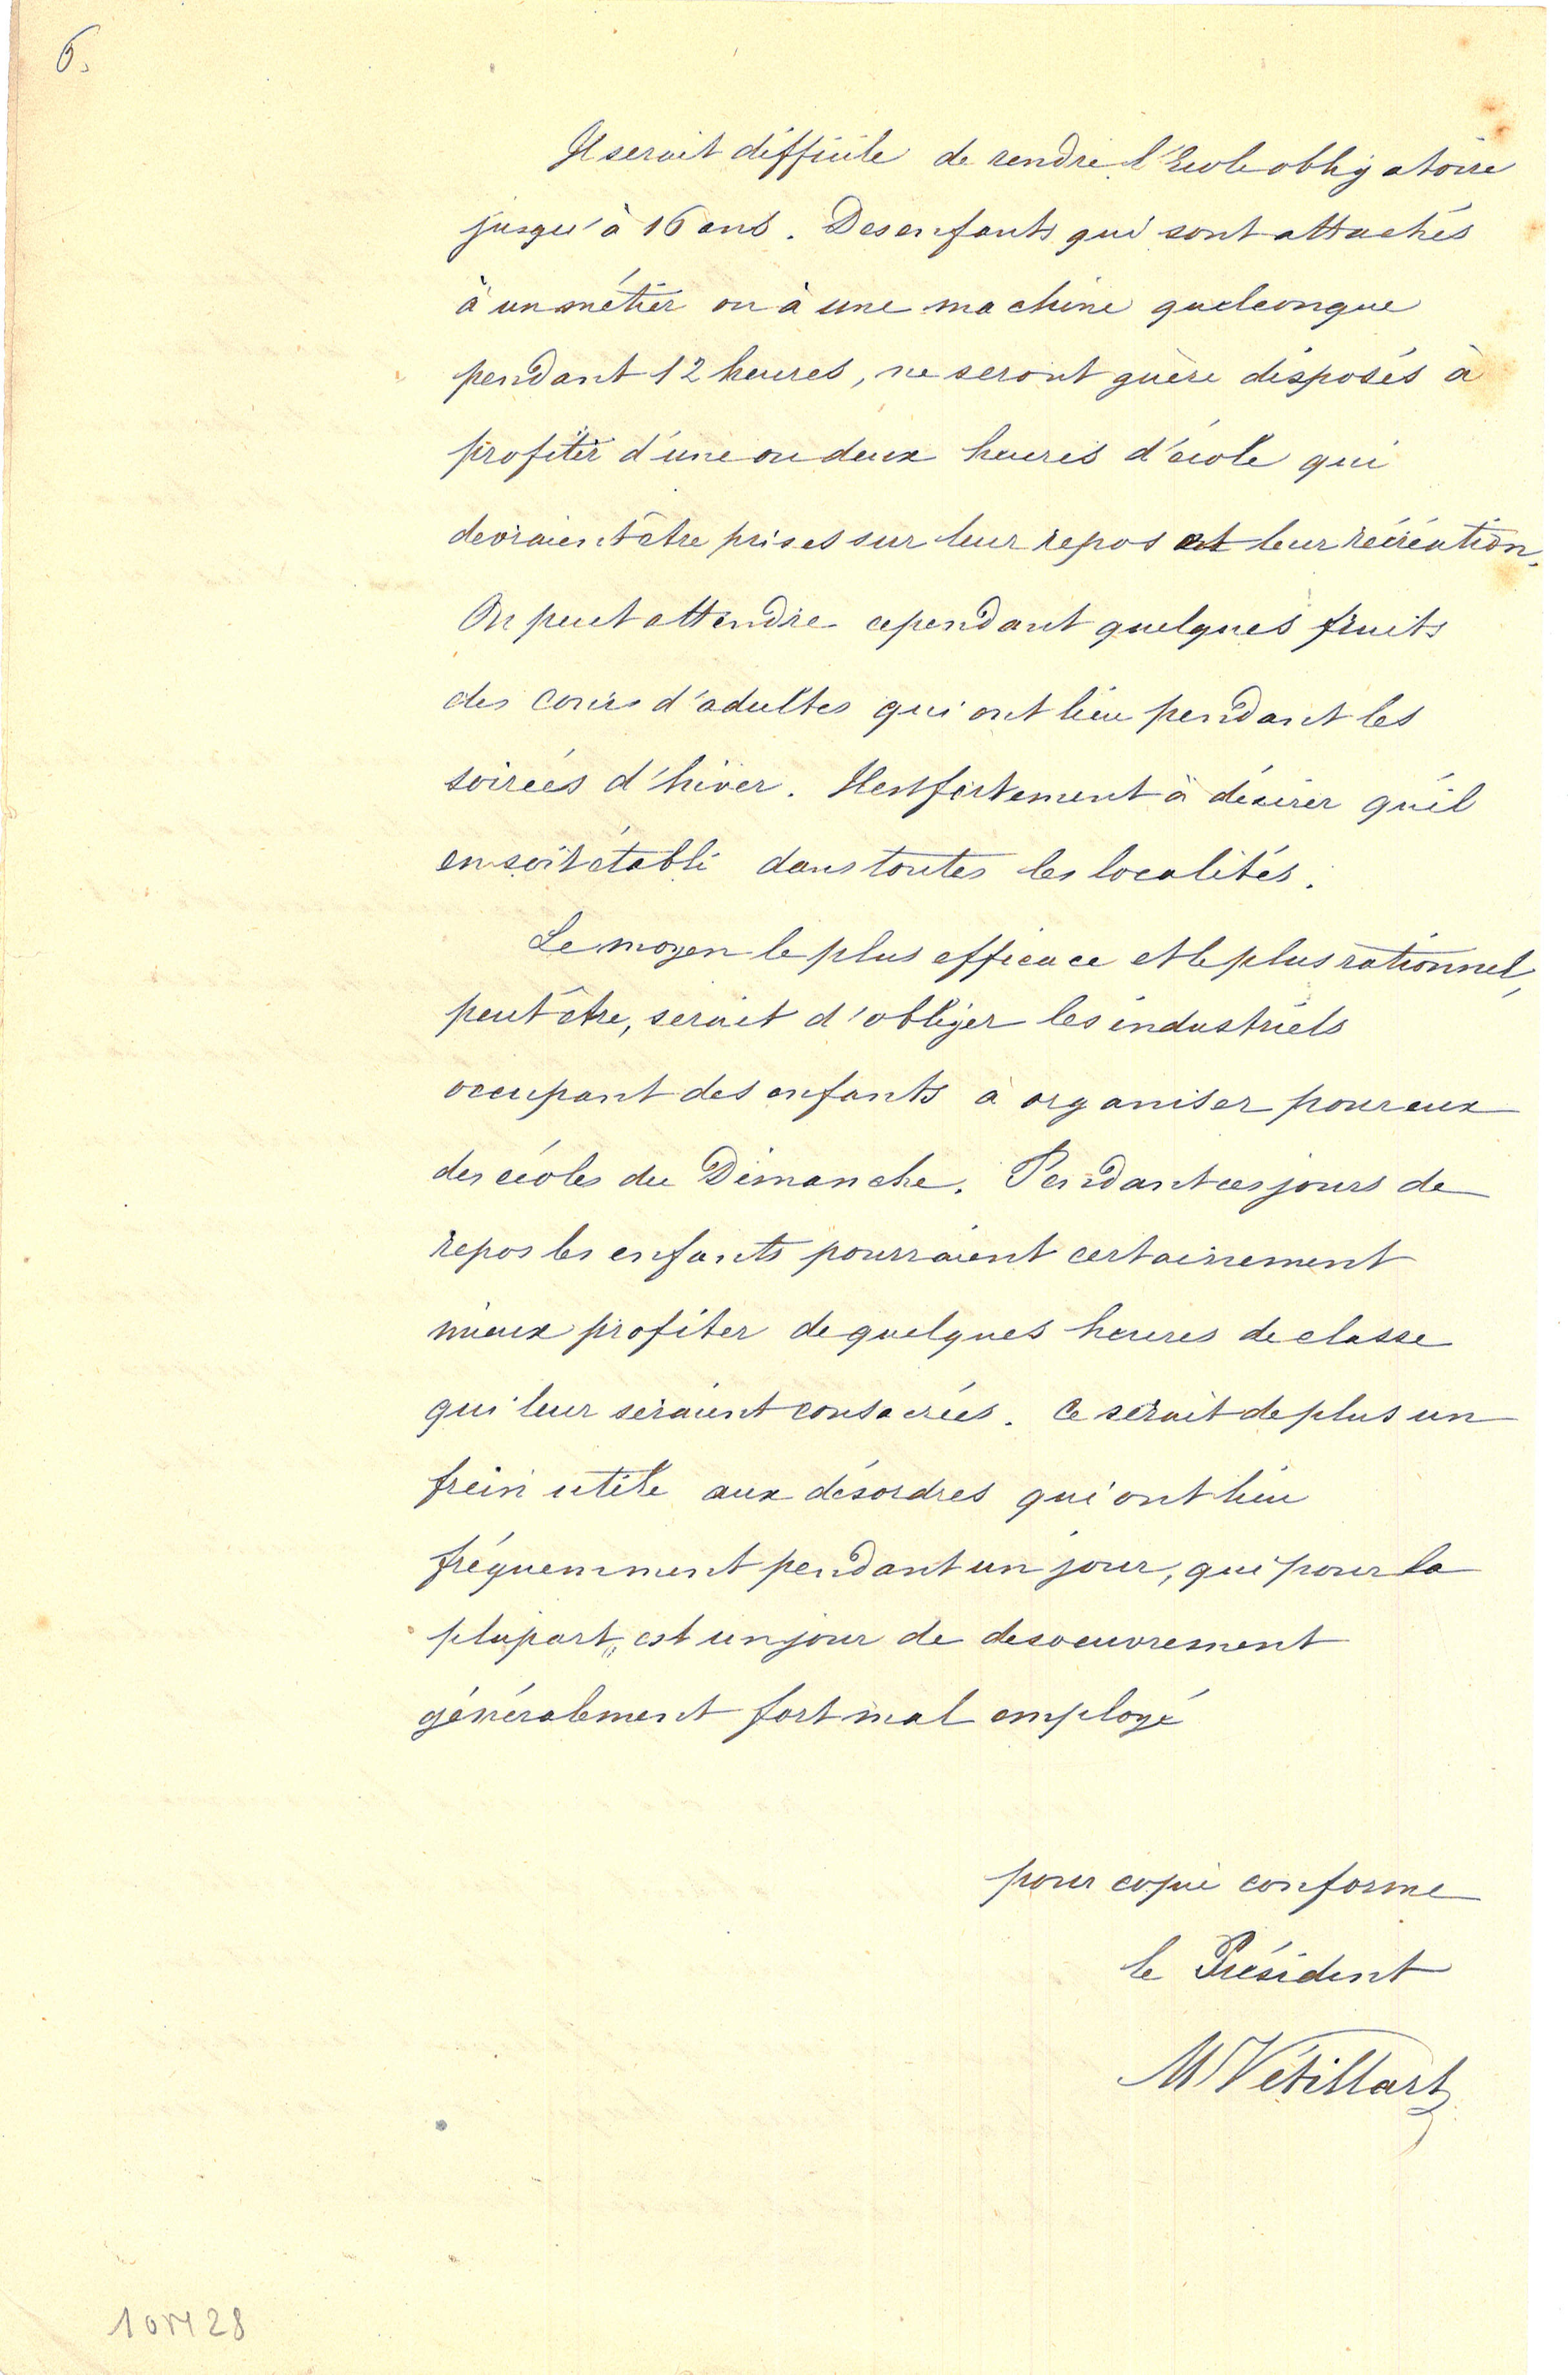 6.
Il serait difficile de rendre l'Ecole obligatoire
jusqu'à 16 ans. Des enfants qui sont attachés
à un métier ou à une machine quelconque
pendant 12 heures, ne seront guère disposés à
profiter d'une ou deux heures d'école qui
devraient être prises sur leur repos et leur récréation.
On peut attendre cependant quelques fruits
des cours d'adultes qui ont lieu pendant les
soirées d'hiver. Il est fortement à désirer qu'il
en soit établi dans toutes les localités.
Le moyen le plus efficace et le plus rationnel,
peut être, serait d'obliger les industriels
occupant des enfants à organiser pour eux
des écoles du Dimanche. Pendant ces jours de
repos les enfants pourraient certainement
mieux profiter de quelques heures de classe
qui leur seraient consacrées. Ce serait de plus un
frein utile aux désordres qui ont lieu
fréquemment pendant un jour, qui pour la
plupart, est un jour de desoeuvrement
généralement fort mal employé
pour copie conforme
le Président
M Vétillart